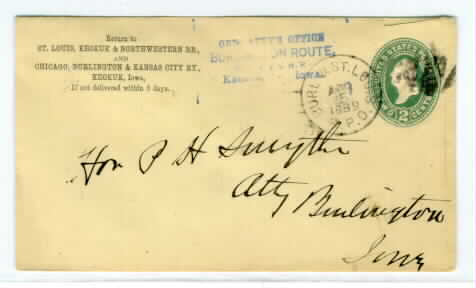 Return to
ST. LOUIS, KEOKUK & NORTHWESTERN RR.,
AND
CHICAGO, BURLINGTON & KANSAS CITY RY.,
KEOKUK, Iowa,
If not delivered within 5 days.
OFFICE
BURLINGTON ROUTE,
Iowa.
BURL & ST. L.
1889
R.P.O.
UNITED STATES
2 CENTS
Hon P H Smythe
Atty Burlington
Iowa